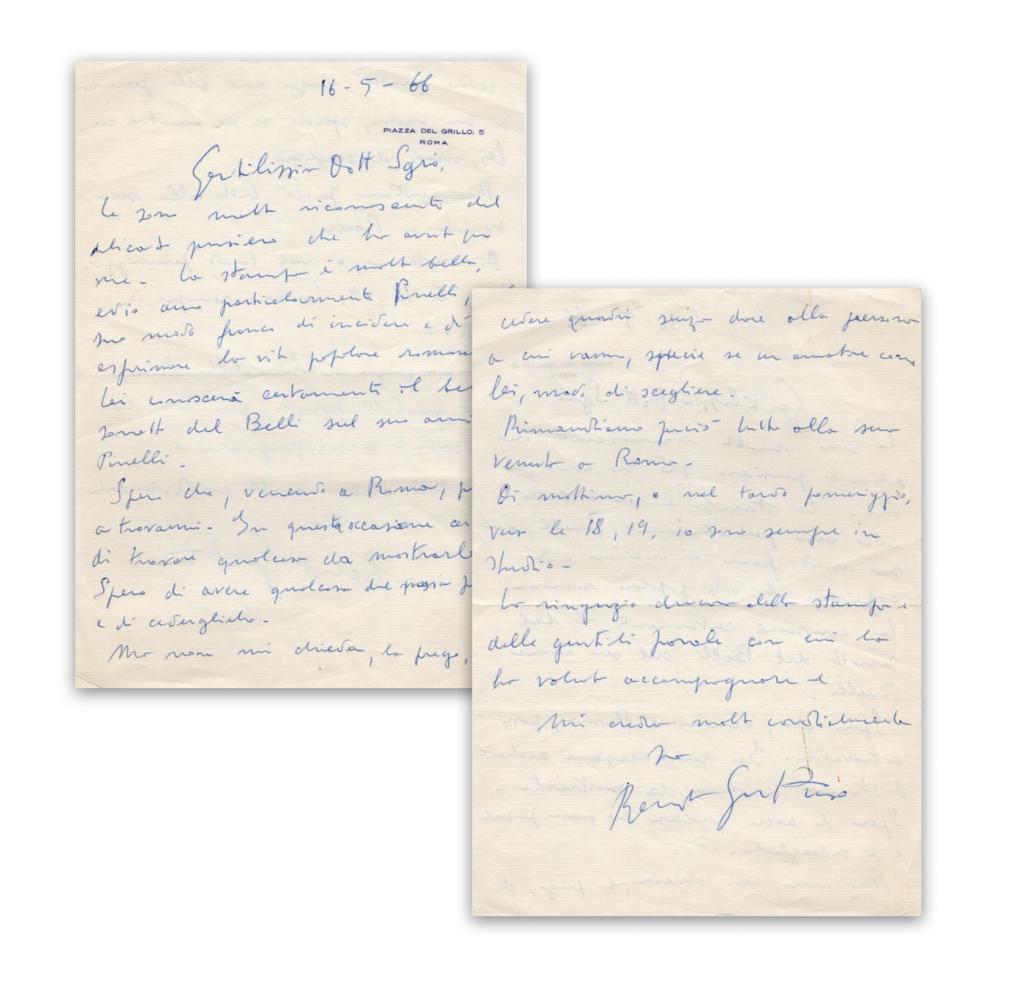 16-5-66
PIAZZA DEL GRILLO, 5
ROMA
Gentilissimo Dott Sgrò,
Le sono molto riconoscente del
delicato pensiero che ha avuto per
me. La stampa è molto bella,
ed io amo particolarmente Pinelli,
suo modo franco di incidere e di
esprimere la vita popolare
Lei conoscerà certamente il
sonetto del Belli sul suo
Pinelli.
Spero che, venendo a Roma,
a trovarmi. In questa occasione
di trovare qualcosa da
Spero di avere qualcosa che possa
e di cederglielo.
Ma non mi chieda, la prego,
cedere quadri senza dare alla persona
a cui vanno, specie se un amatore come
lei, modo di scegliere.
Rimandiamo perciò tutto alla sua
venuta a Roma.
Di mattina, o nel tardo pomeriggio,
verso le 18, 19, io sono sempre in
studio.
La ringrazio ancora della stampa e
delle gentili parole con cui la
ha voluto accompagnare e
mi creda molto cordialmente
suo
Renato Guttuso